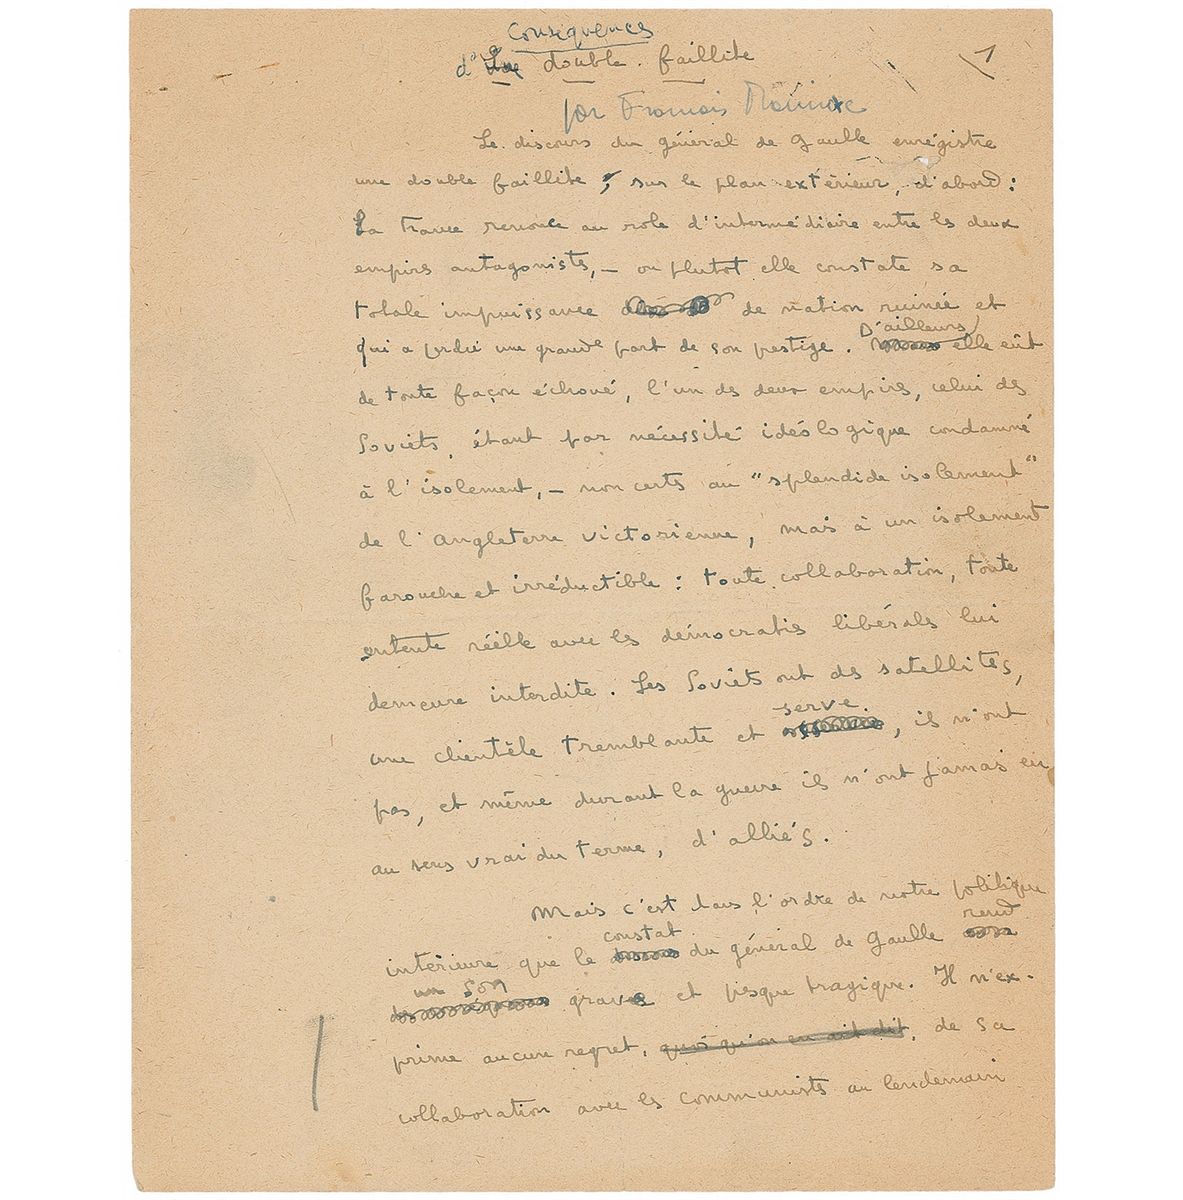 Conséquences
d'Une double faillite
1
par François Mauriac
Le discours du général de Gaulle enrégistre
une double faillite, sur le plan extérieur, d'abord :
La France renonce au role d'intermédiaire entre les deux
empires antagonistes, – ou plutot elle constate sa
totale impuissance de nation ruinée et
D'ailleurs
qui a perdu une grande part de son prestige. Mais elle eût
de toute façon échoué, l'un des deux empires, celui des
Soviets, étant par nécessité idéologique condamné
à l'isolement, – non certes au "splendide isolement"
de l'Angleterre victorienne, mais à un isolement
farouche et irréductible : toute collaboration, toute
entente réelle avec les démocraties libérales lui
demeure interdite. Les Soviets ont des satellites,
serve.
une clientèle tremblante et , ils n'ont
pas, et même durant la guerre ils n'ont jamais eu
au sens vrai du terme, d'alliés.
Mais c'est dans l'ordre de notre politique
constat rend
intérieure que le du général de Gaulle
un son
grave et presque tragique. Il n'ex-
prime aucun regret, quoi qu'on en ait dit, de sa
collaboration avec les communistes au lendemain